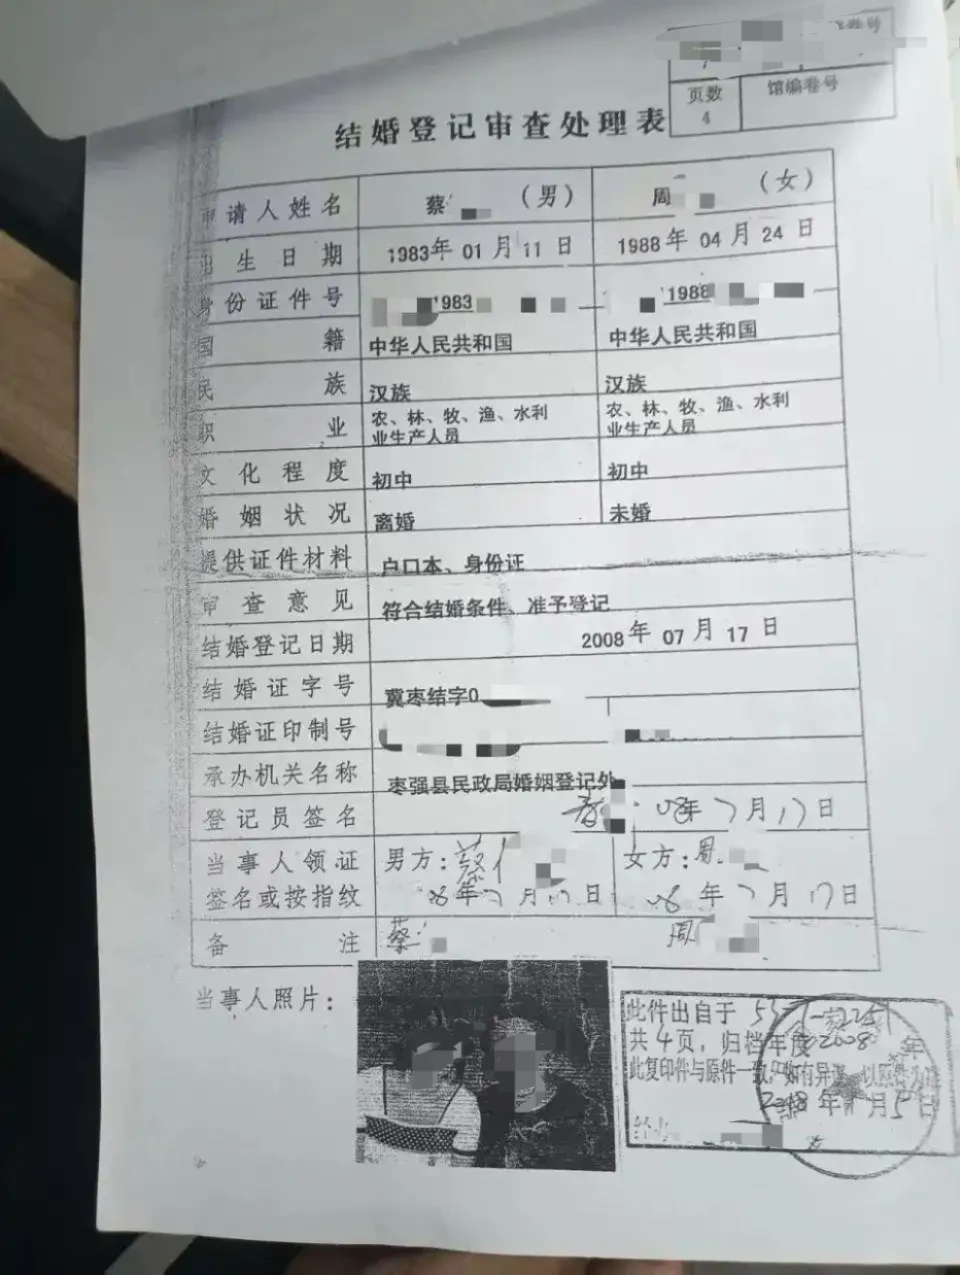 卷号
页数 馆编卷号
4
结婚登记审查处理表
申请人姓名 蔡 (男) 周 (女)
出生日期 1983年 01 月 11 日 1988 年 04 月 24 日
身份证件号 1983 1988
国籍 中华人民共和国 中华人民共和国
民族 汉族 汉族
职业 农、林、牧、渔、水利 农、林、牧、渔、水利
业生产人员 业生产人员
文化程度 初中 初中
婚姻状况 离婚 未婚
提供证件材料 户口本、身份证
审查意见 符合结婚条件、准予登记
结婚登记日期 2008 年 07 月 17 日
结婚证字号 冀枣结字0
结婚证印制号
承办机关名称 枣强县民政局婚姻登记处
登记员签名 08年 7月17日
当事人领证 男方:蔡 女方:周
签名或按指纹 08年 7月17日 08年 7月17日
备注 蔡 周
当事人照片:
此件出自于
共4页,归档年度2008年
此复印件与原件一致,如有异议,以原件为准
2018年 月5日